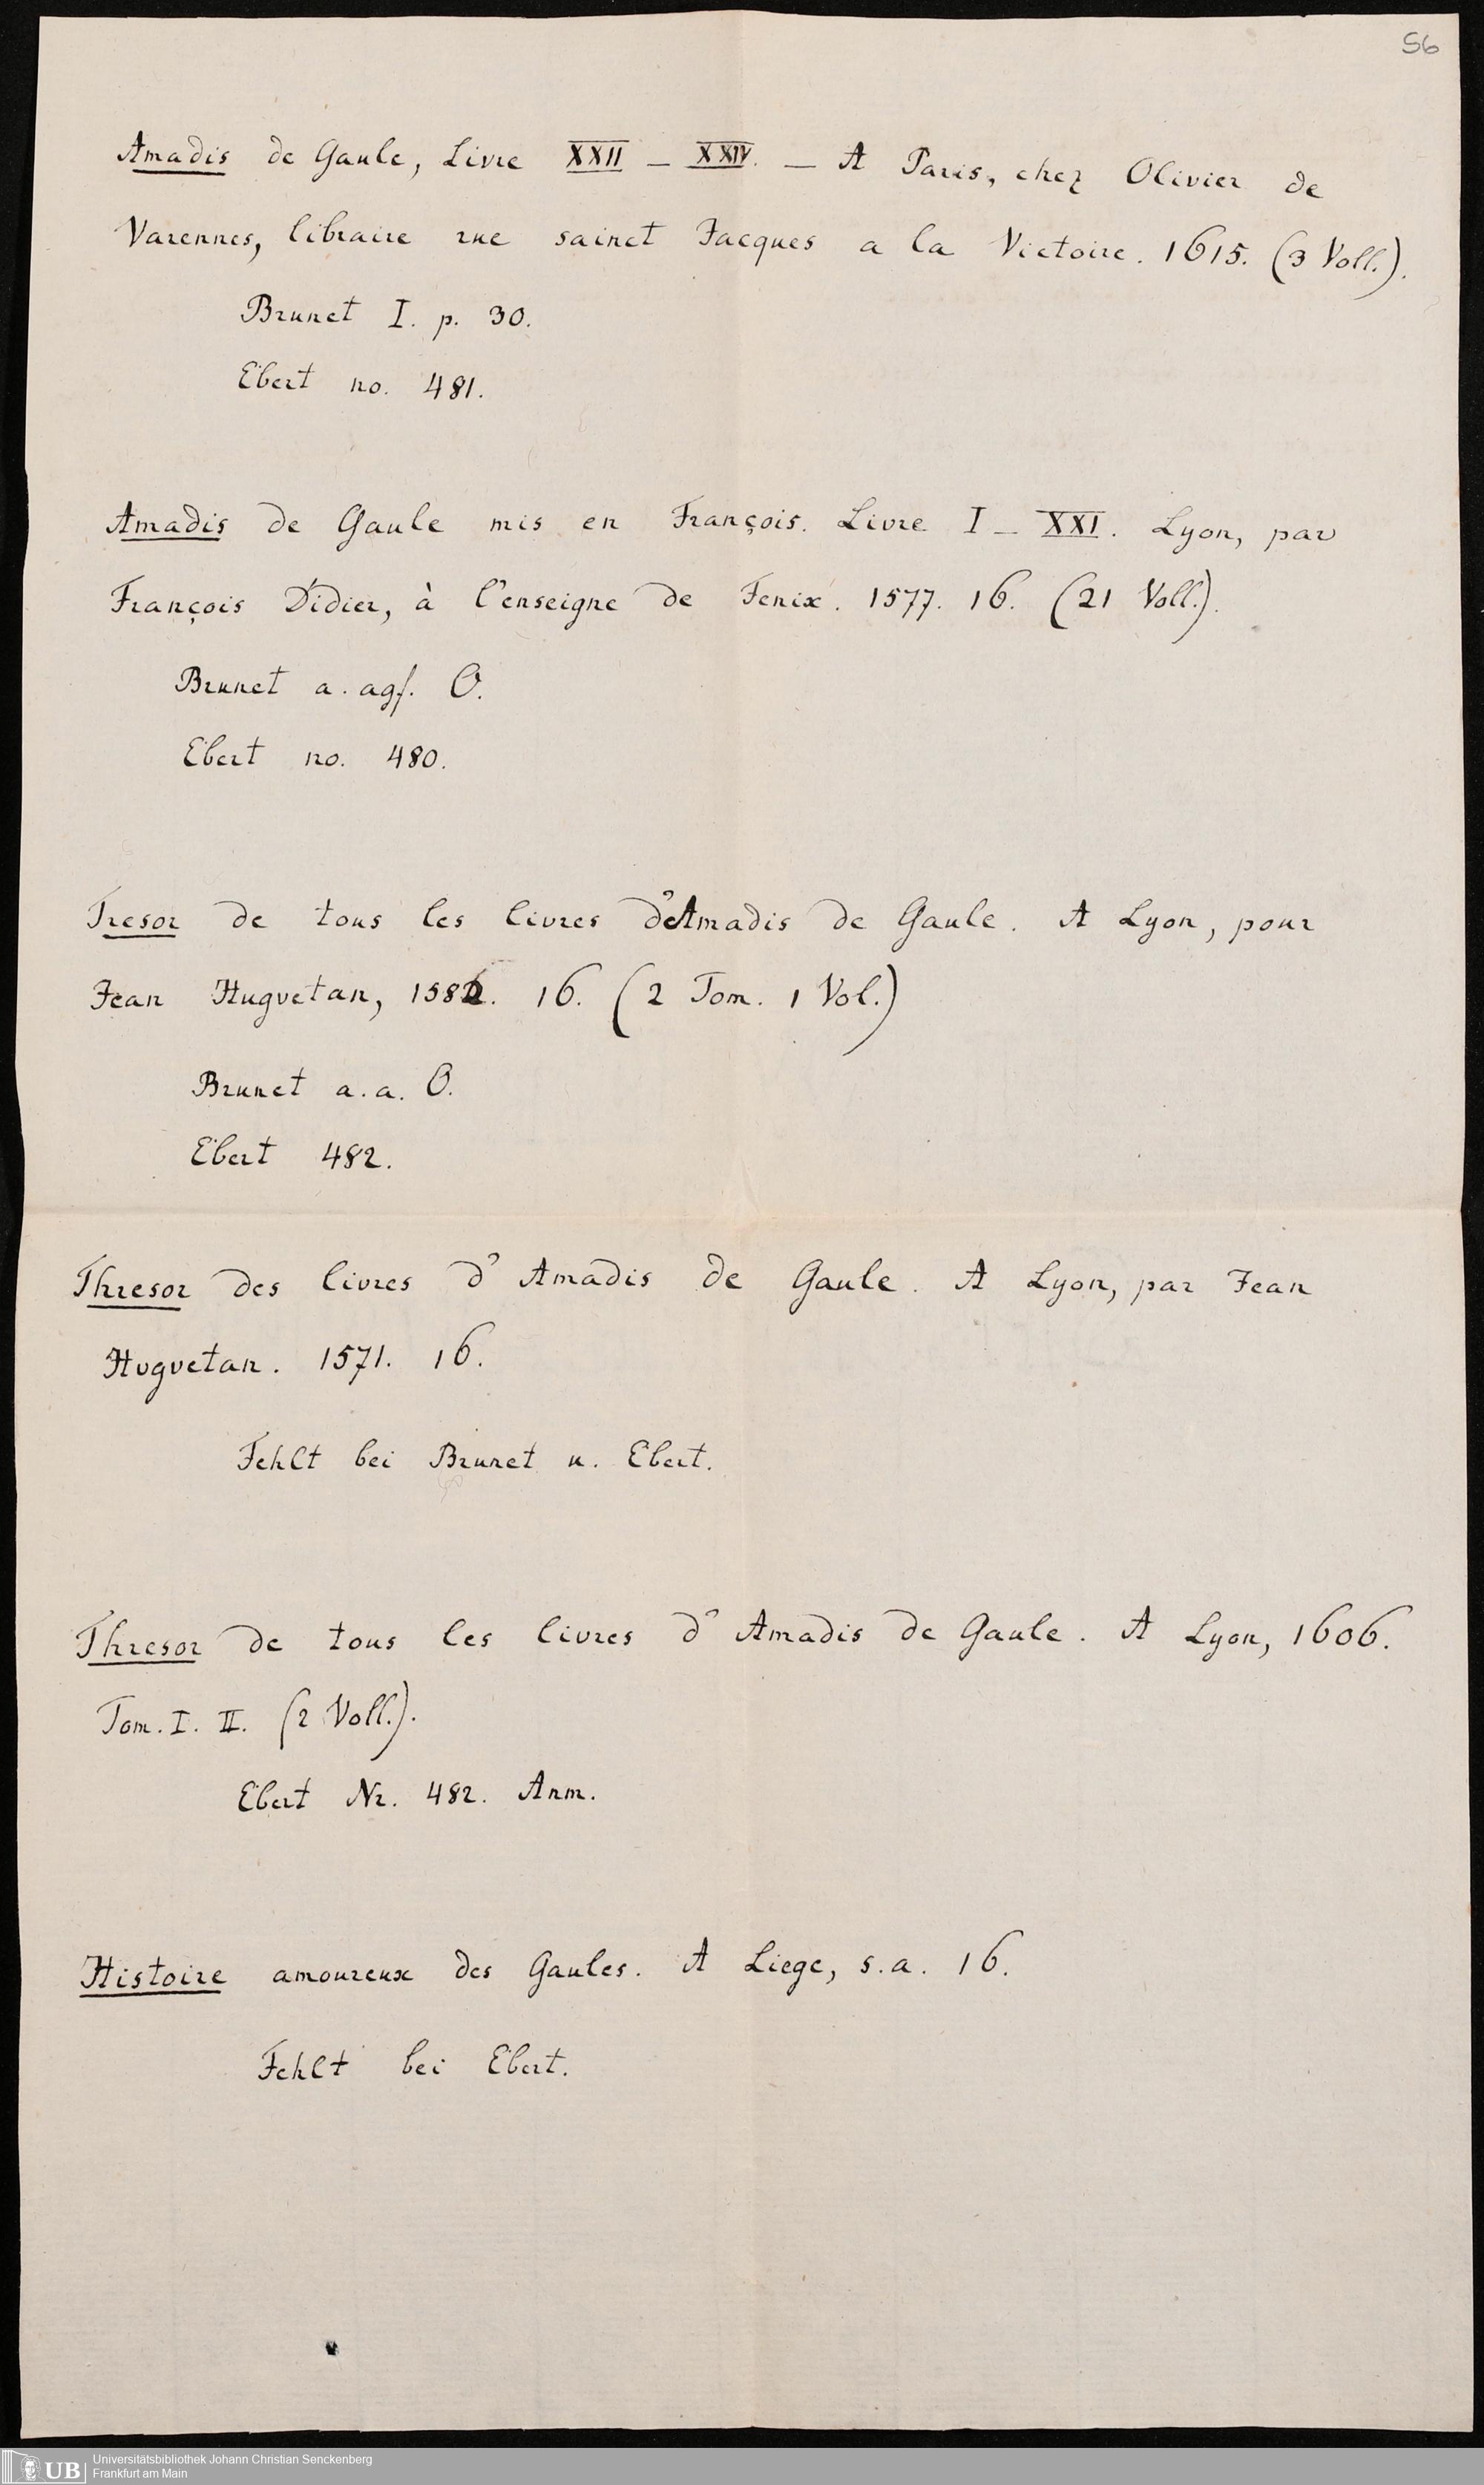 56
Amadis de Gaule, Livre XXII – XXIV. – A Paris, chez Olivier de
Varennes, libraire rue sainct Jacques a la Victoire. 1615. (3 Voll.).
Brunet I. p. 30.
Ebert no. 481.
Amadis de Gaule mis en François. Livre I – XXI. Lyon, par
François Didier, à l'enseigne de Fenix. 1577. 16. (21 Voll.).
Brunet a. agf. O.
Ebert no. 480.
Tresor de tous les livres d'Amadis de Gaule. A Lyon, pour
Jean Hugvetan, 1582. 16. (2 Tom. 1 Vol.)
Brunet a. a. O.
Ebert 482.
Thresor des livres d'Amadis de Gaule. A Lyon, par Jean
Hugvetan. 1571. 16.
Fehlt bei Brunet u. Ebert.
Thresor de tous les livres d'Amadis de Gaule. A Lyon, 1606.
Tom. I. II. (2 Voll.).
Ebert Nr. 482. Anm.
Histoire amoureux des Gaules. A Liege, s. a. 16.
Fehlt bei Ebert.
UB Universitätsbibliothek Johann Christian Senckenberg
Frankfurt am Main